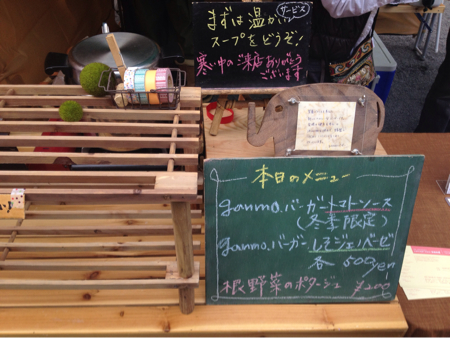 まずは温かい
サービス
スープをどうぞ!
寒い中のご来店ありがとう
ございます
本日のメニュー
ganmo.バーガートマトソース
(冬季限定)
ganmo.バーガー
各 500yen
根野菜のポタージュ ¥200